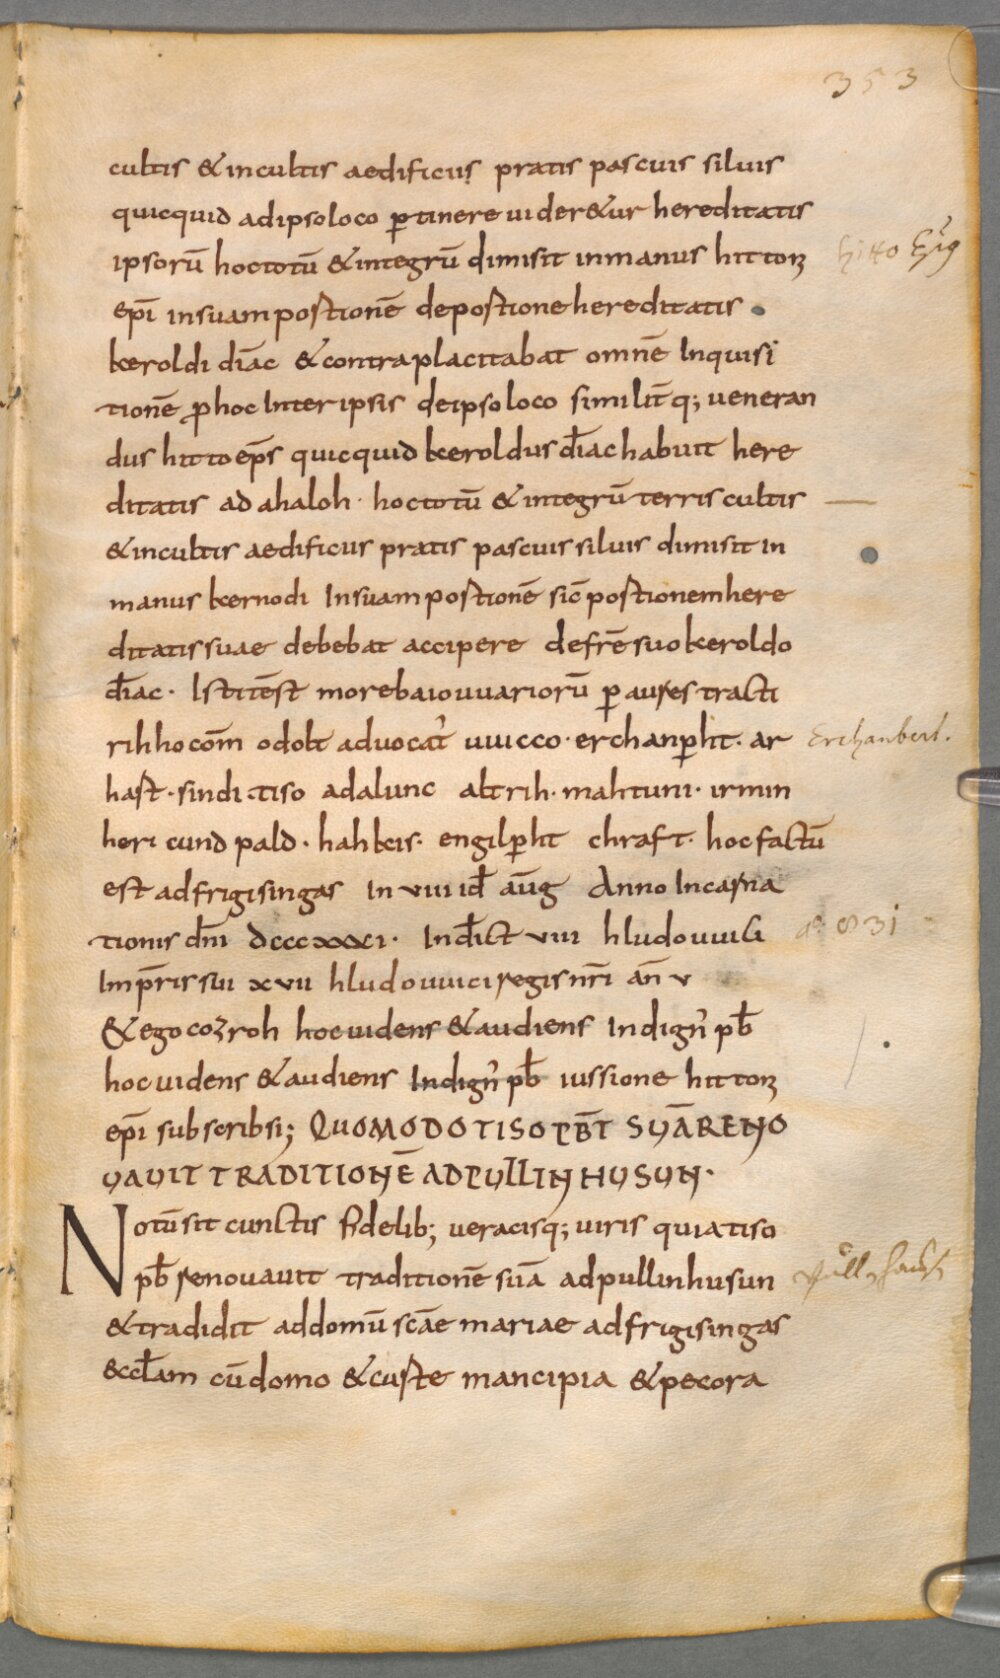 353
cultis & incultis aedificiis pratis pascuis siluis
quicquid ad ipso loco ꝑtinere uider&ur hereditatis
ipsorū hoc totū & integrū dimisit in manus hittonꝫ
ep̄i in suam postionē de postione hereditatis
keroldi diāc & contraplacitabat omnē Inquisi
tionē ꝓ hoc Inter ipsis de ipso loco similit̄ q; ueneran
dus hitto ep̄s quicquid keroldus diac̄ habuit here
ditatis ad ahaloh · hoc totū & integrū terris cultis
& incultis aedificiis pratis pascuis siluis dimisit in
manus kernodi In suam postionē sic̄ postionem here
ditatis suae debebat accipere de fr̄e suo keroldo
diac̄ · Isti t̄est more baiouuariorū ꝑ aures tracti
rihho com̄ odolt aduocat̓ uuicco · erchanꝑht · ar
hast · sindi · tiso adalunc altrih · mahtuni · irmin
heri cundpald · hahkis · engilꝑht chraft · hoc factū
est ad frigisingas In VIIII id̄ aūg Anno Incarna
tionis dn̄i dcccxxxi · Indict̄ viii hludouuici
Imp̄ris sui xvii hludouuici regis nr̄i an̄ v
& ego cozroh hoc uidens & audiens Indign̓ pb̄
hoc uidens & audiens Indign̓ pb̄ iussione hittonꝫ
ep̄i subscribsi; QUOMODO TISO PB̄T SUĀ RENO
UAUIT TRADITIONĒ AD PULLINHUSUN ·
Notū sit cunctis fidelib; ueracisq; uiris quia tiso
pb̄ renouauit traditionē suā ad pullinhusun
& tradidit ad domū sc̄ae mariae ad frigisingas
eccl̄am cū domo & custe mancipia & pecora
hitto Epig
Erchanbert.
a. 831